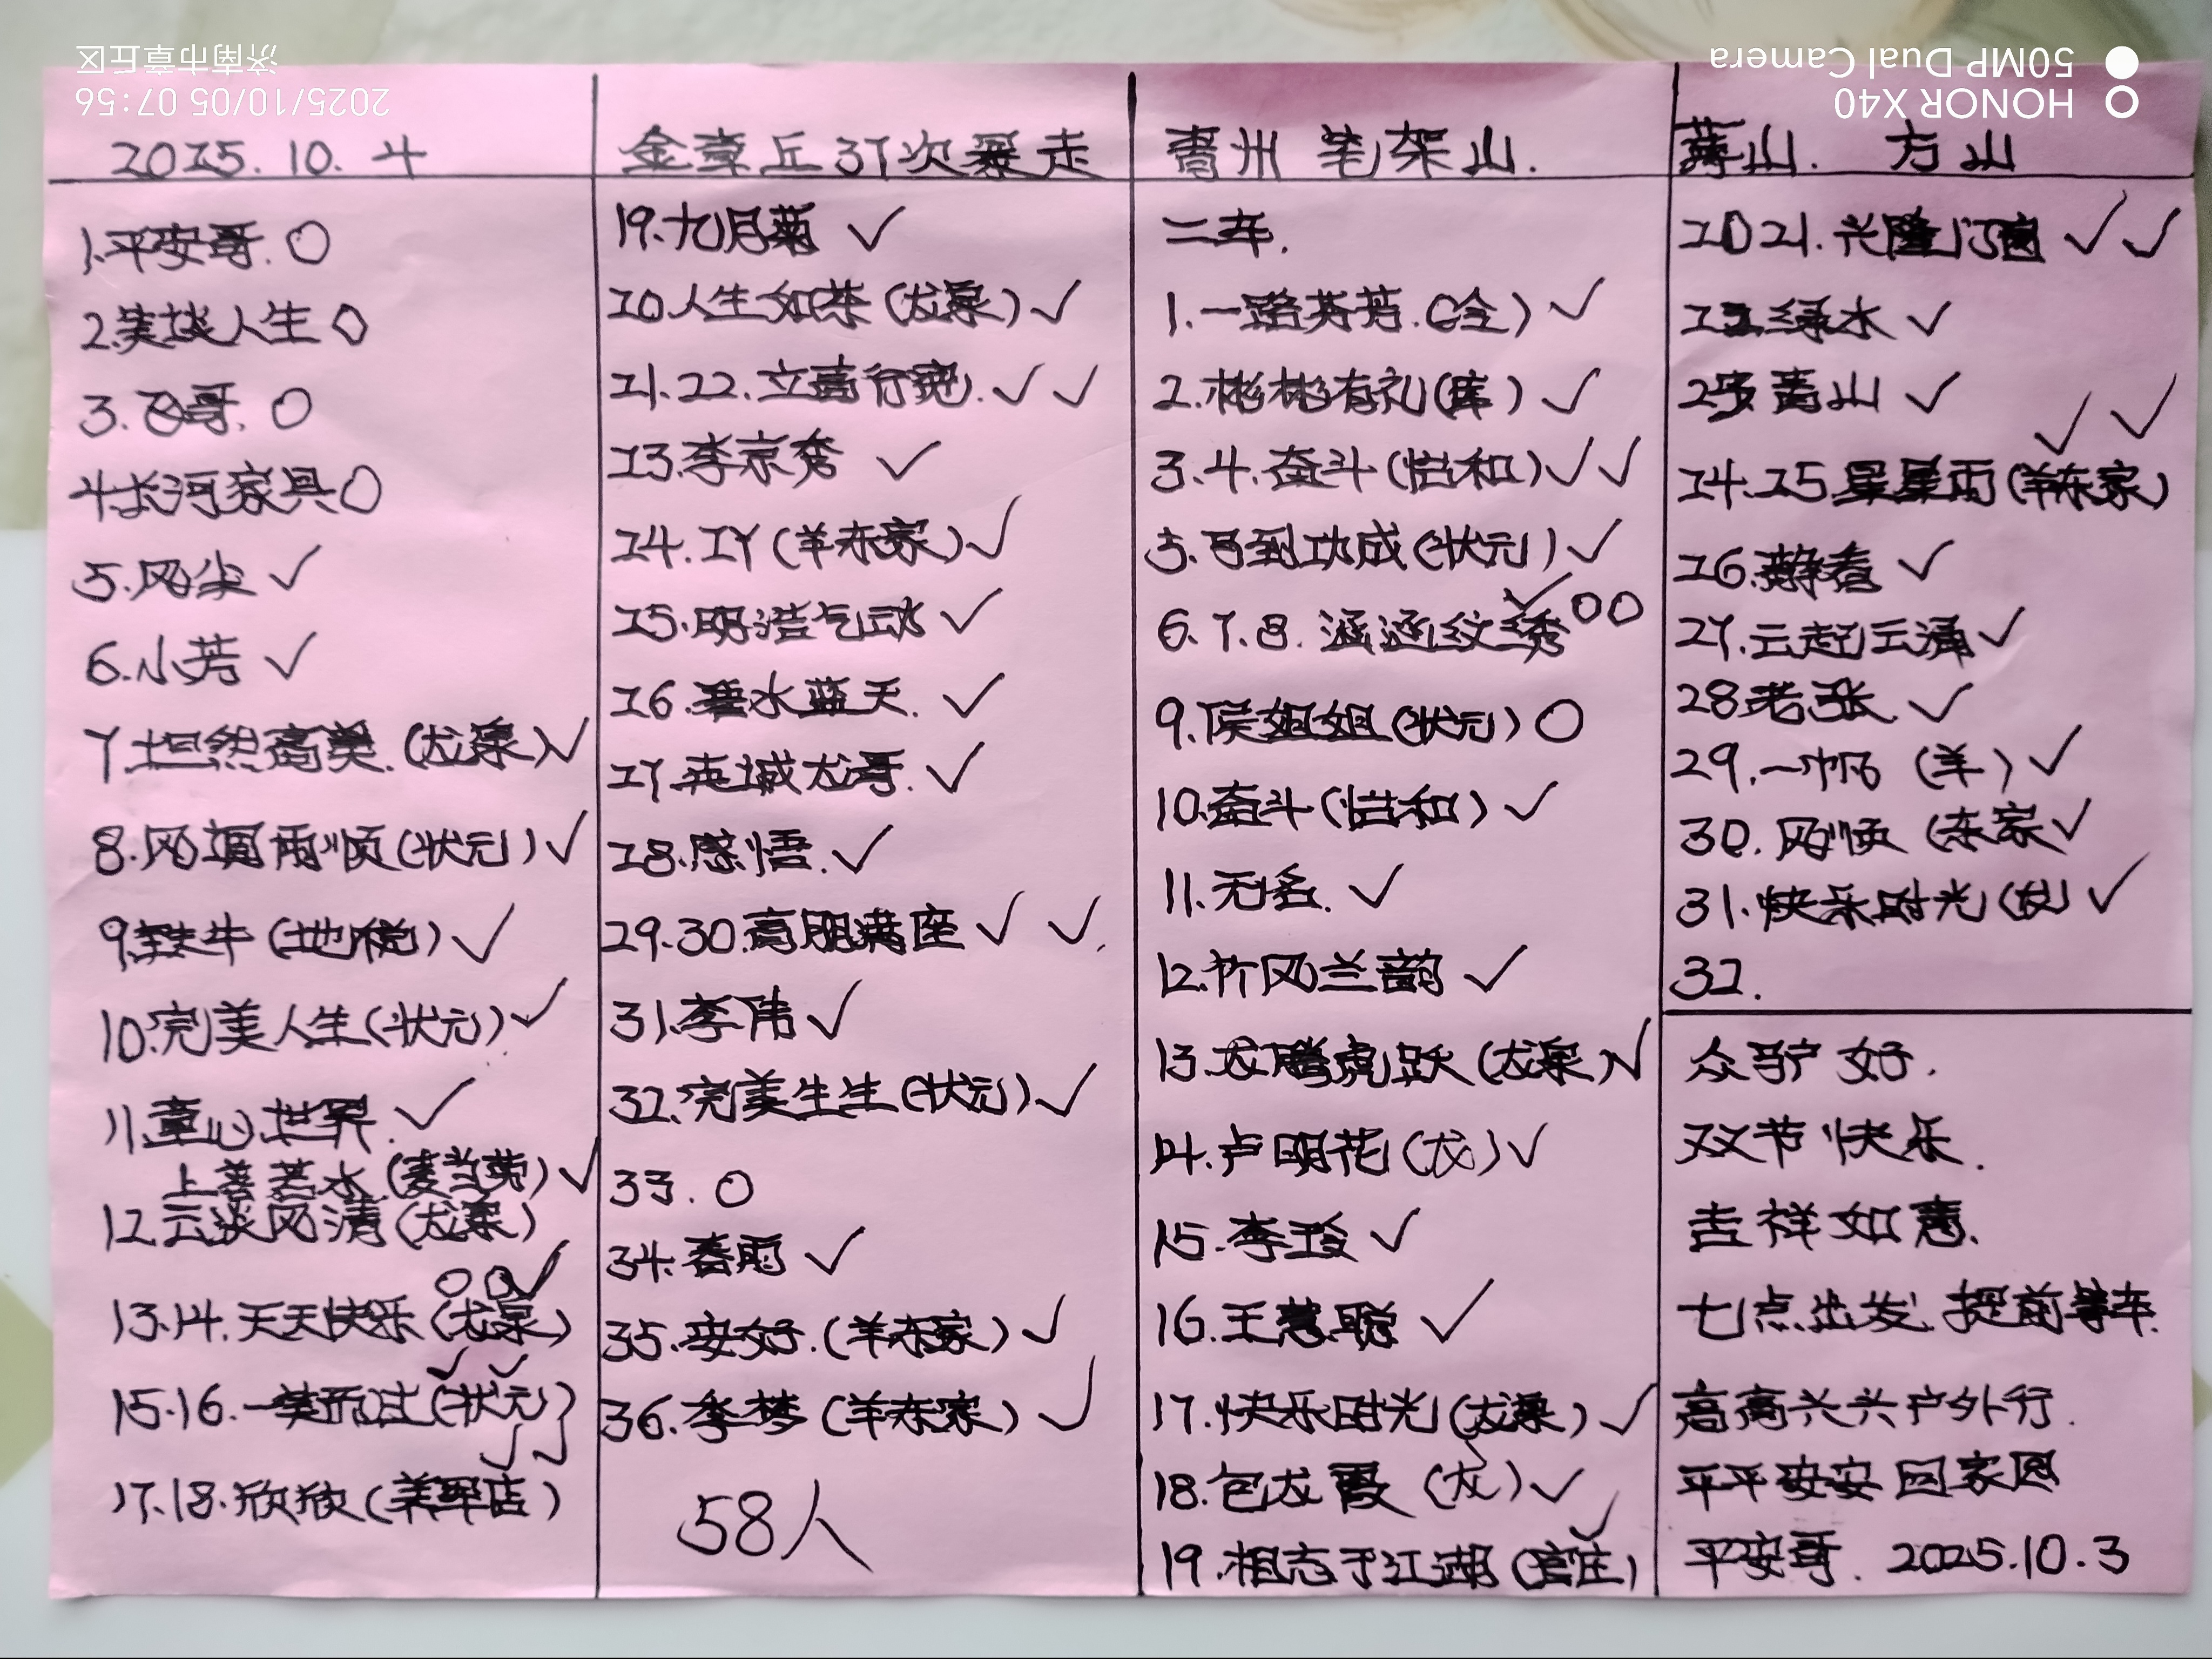 济南市章丘区
2025/10/05 07:56
HONOR X40
50MP Dual Camera
2025.10.4
金章丘37次暴走
青州 笔架山.
薄山. 方山
1.平安哥.○
2.笑谈人生○
3.飞哥.○
4.长河家具○
5.风尘√
6.小芳√
7.坦然高美.(龙泉)√
8.风调雨顺(状元)√
9.铁牛(地税)√
10.完美人生(状元)√
11.童心世界.√
上善若水(麦当劳)√
12.云淡风清(龙泉)
○○√
13.14.天天快乐(龙泉)
√√
15.16.一笑而过(状元)
√√
17.18.欣欣(美军店)
19.九月菊√
20.人生如茶(龙泉)√
21.22.立嘉行宽.√√
23.李京秀√
24.IY(羊东家)√
25.明浩气动√
26.碧水蓝天.√
27.英城龙哥.√
28.感悟.√
29.30.高朋满座√√.
31.李伟√
32.完美生生(状元)√
33.○
34.春雨√
35.安好.(羊东家)√
36.李梦(羊东家)√
58人
二车.
1.一路芬芳.(全)√
2.彬彬有礼(库)√
3.4.奋斗(怡和)√√
5.马到功成(状元)√
6.7.8.涵涵纹绣√○○
9.侯姐姐(状元)○
10.奋斗(怡和)√
11.无名.√
12.竹风兰韵√
13.龙腾虎跃(龙泉)√
14.卢明花(龙)√
15.李玲√
16.王慧聪√
17.快乐时光(龙泉)√
18.包龙霞(龙)√
√
19.相忘于江湖(官庄)
20 21.兴隆门窗√√
22.绿水√
23.青山√
√√
24.25.星星雨(羊东家)
26.静看√
27.云起云涌√
28老张.√
29.一帆(羊)√
30.风顺(东家√
31.快乐时光(龙)√
32.
众驴好.
双节快乐.
吉祥如意.
七点出发.提前等车.
高高兴兴户外行.
平平安安回家园
平安哥. 2025.10.3